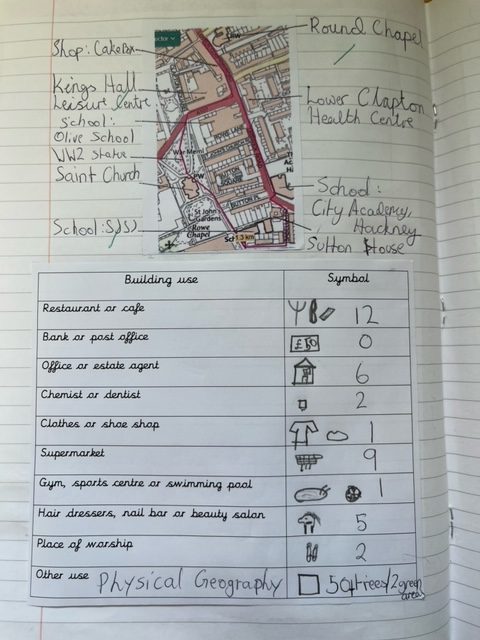 Round Chapel
Shop: Cakebox
Kings Hall
Leisure Centre
School:
Olive School
WW2 statue
Saint Church
School: SJSJ
Lower Clapton
Health Centre
School:
City Academy,
Hackney
Sutton House
War Meml
PW
St John's
Gardens
Rowe
Chapel
1.3 km
Building use Symbol
Restaurant or cafe 12
Bank or post office £50 0
Office or estate agent 6
Chemist or dentist 2
Clothes or shoe shop 1
Supermarket 9
Gym, sports centre or swimming pool 1
Hair dressers, nail bar or beauty salon 5
Place of worship 2
Other use Physical Geography 50+trees/2 green
areas